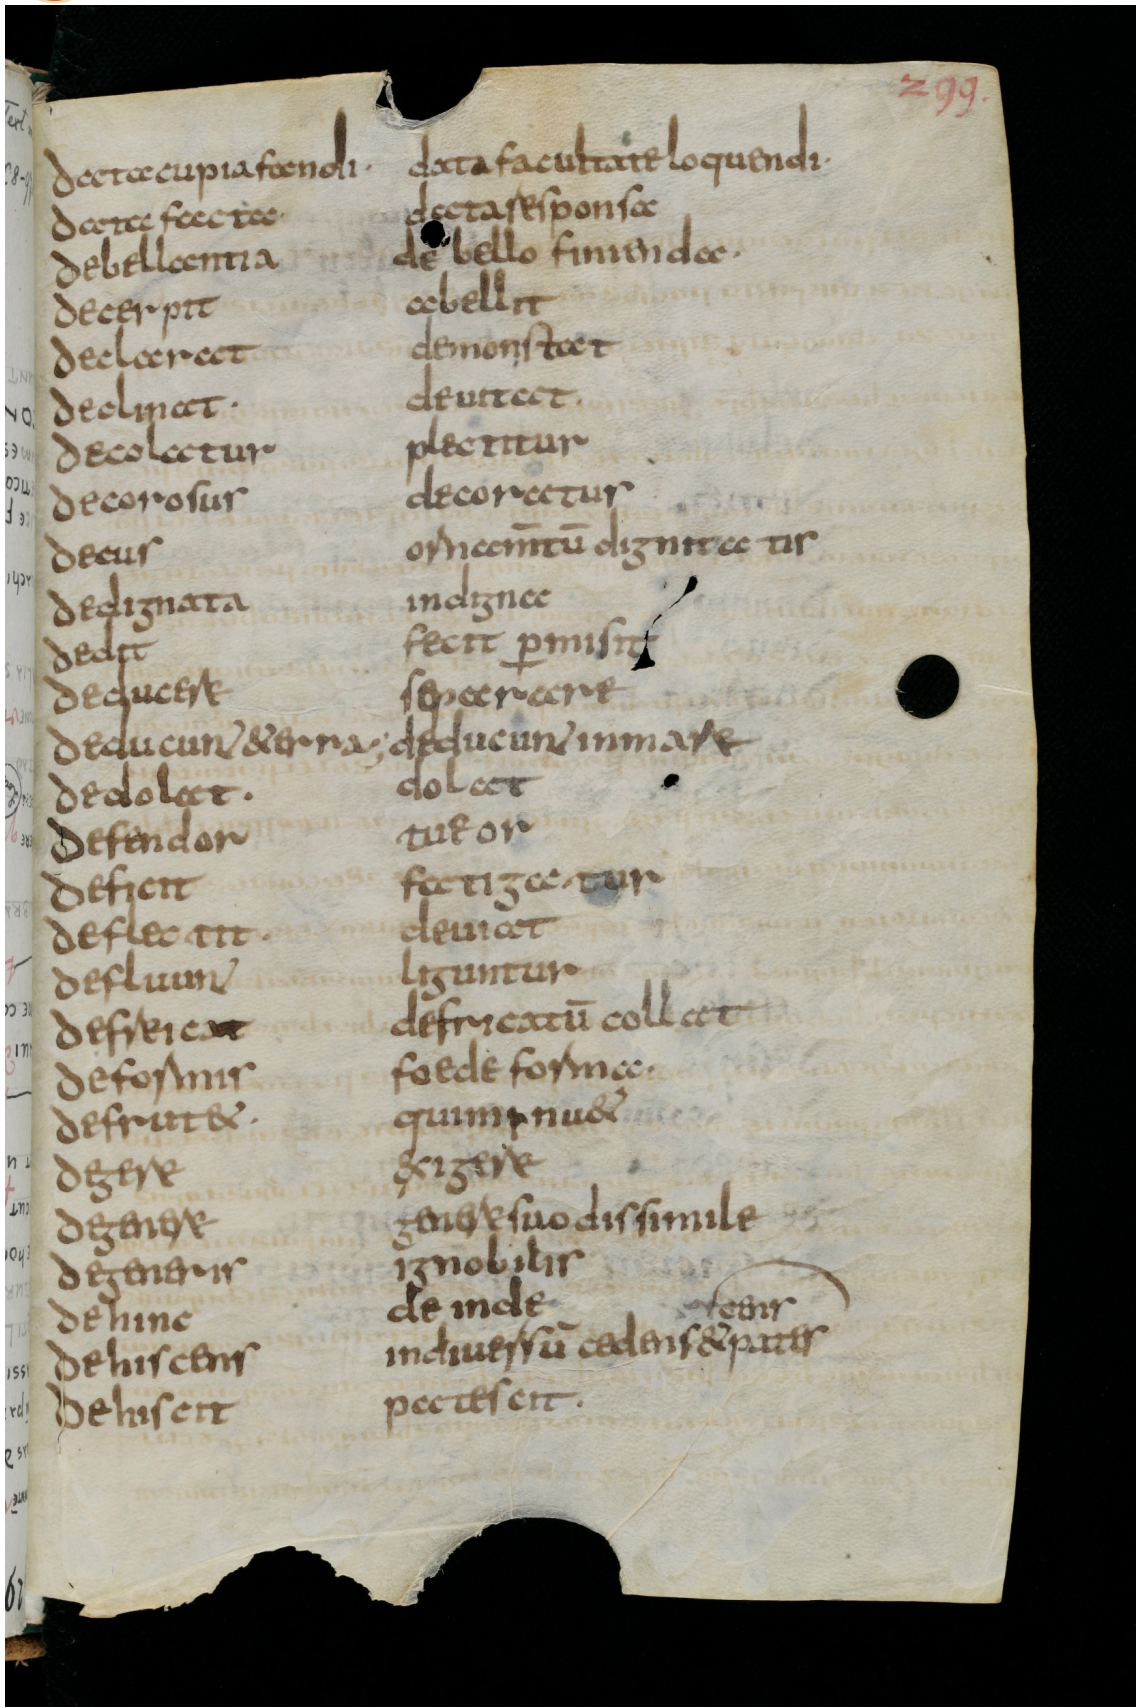 299.
data cupia fandi· data facultate loquendi·
data facta· data responsa
debellantia de bello finienda·
decerpit abellit
declarat demonstrat
declinat· deuitat·
decolatur plectitur
decorosus decoratur
decus ornam̅tū dignitatis
dedignata indigna
dedit fecit ꝑmisit
deducere separare
deducun̅ &erra; deducun̅ in mare
dedoleat· doleat
defendor tueor
deficit fatigatur
deflectit· deuiat
defluun̅ liguntur
defricat defricatū collat
deformis foede forma·
defrut&· qui minu&
degere exigere
degenere genere suo dissimile
degeneris ignobilis
dehinc de inde
cens
dehiscens in diuersū cedens & pates
dehiscit patescit·